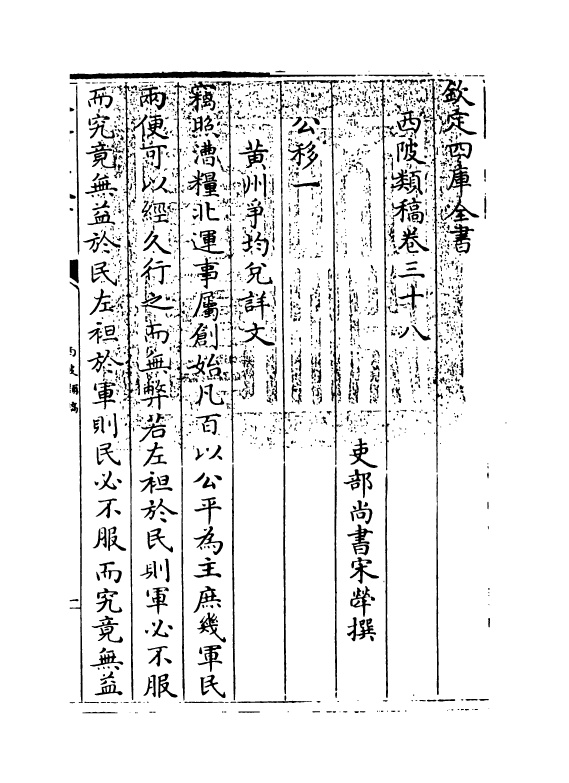 欽定四庫全書
西陂類稿卷三十八
吏部尚書宋犖撰
公移一
黄州爭均兌詳文
竊照漕糧北運事屬創始凡百以公平為主庶幾軍民
兩便可以經久行之而無弊若左袒於民則軍必不服
而究竟無益於民左袒於軍則民必不服而究竟無益
西陂類稿